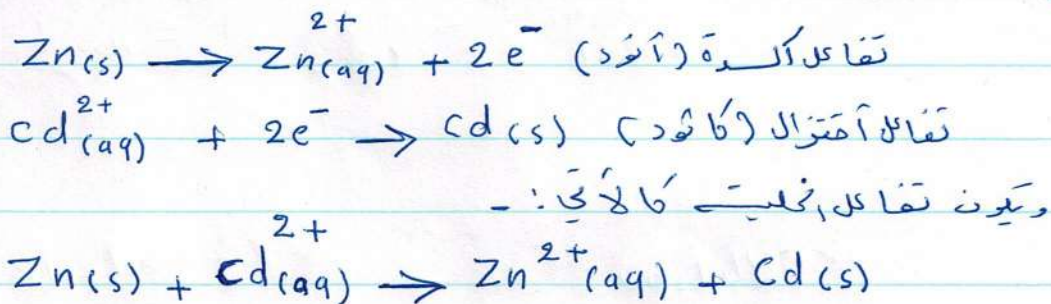 Zn(s) → Zn²⁺(aq) + 2e⁻ تفاعل أكسدة (أنود)
cd²⁺(aq) + 2e⁻ → cd(s) تفاعل أختزال (كاثود)
ويكون تفاعل الخلية كالآتي :-
Zn(s) + cd²⁺(aq) → Zn²⁺(aq) + Cd(s)